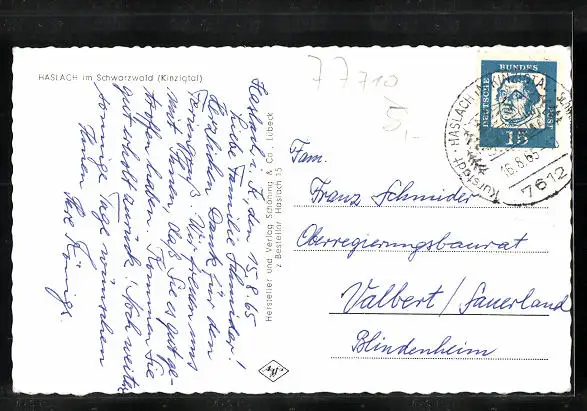 HASLACH im Schwarzwald (Kinzigtal)
Haslach i. K., den 15.8.65
Liebe Familie Schnider!
Herzlichen Dank für den
Feriengruß. Wir freuen uns
mit Ihnen, daß Sie es gut ge-
troffen haben. Kommen Sie
gut erholt zurück. Noch weitere
sonnige Tage wünschen
Ihnen
Ihre König.
Hersteller und Verlag Schöning & Co., Lübeck
z Besteller Haslach 35
77710
5,-
DEUTSCHE BUNDESPOST
15
HASLACH (KINZIGTAL)
Kurstadt
16.8.65
7612
Fam.
Franz Schnider
Oberregierungsbaurat
Valbert/Sauerland
Blindenheim